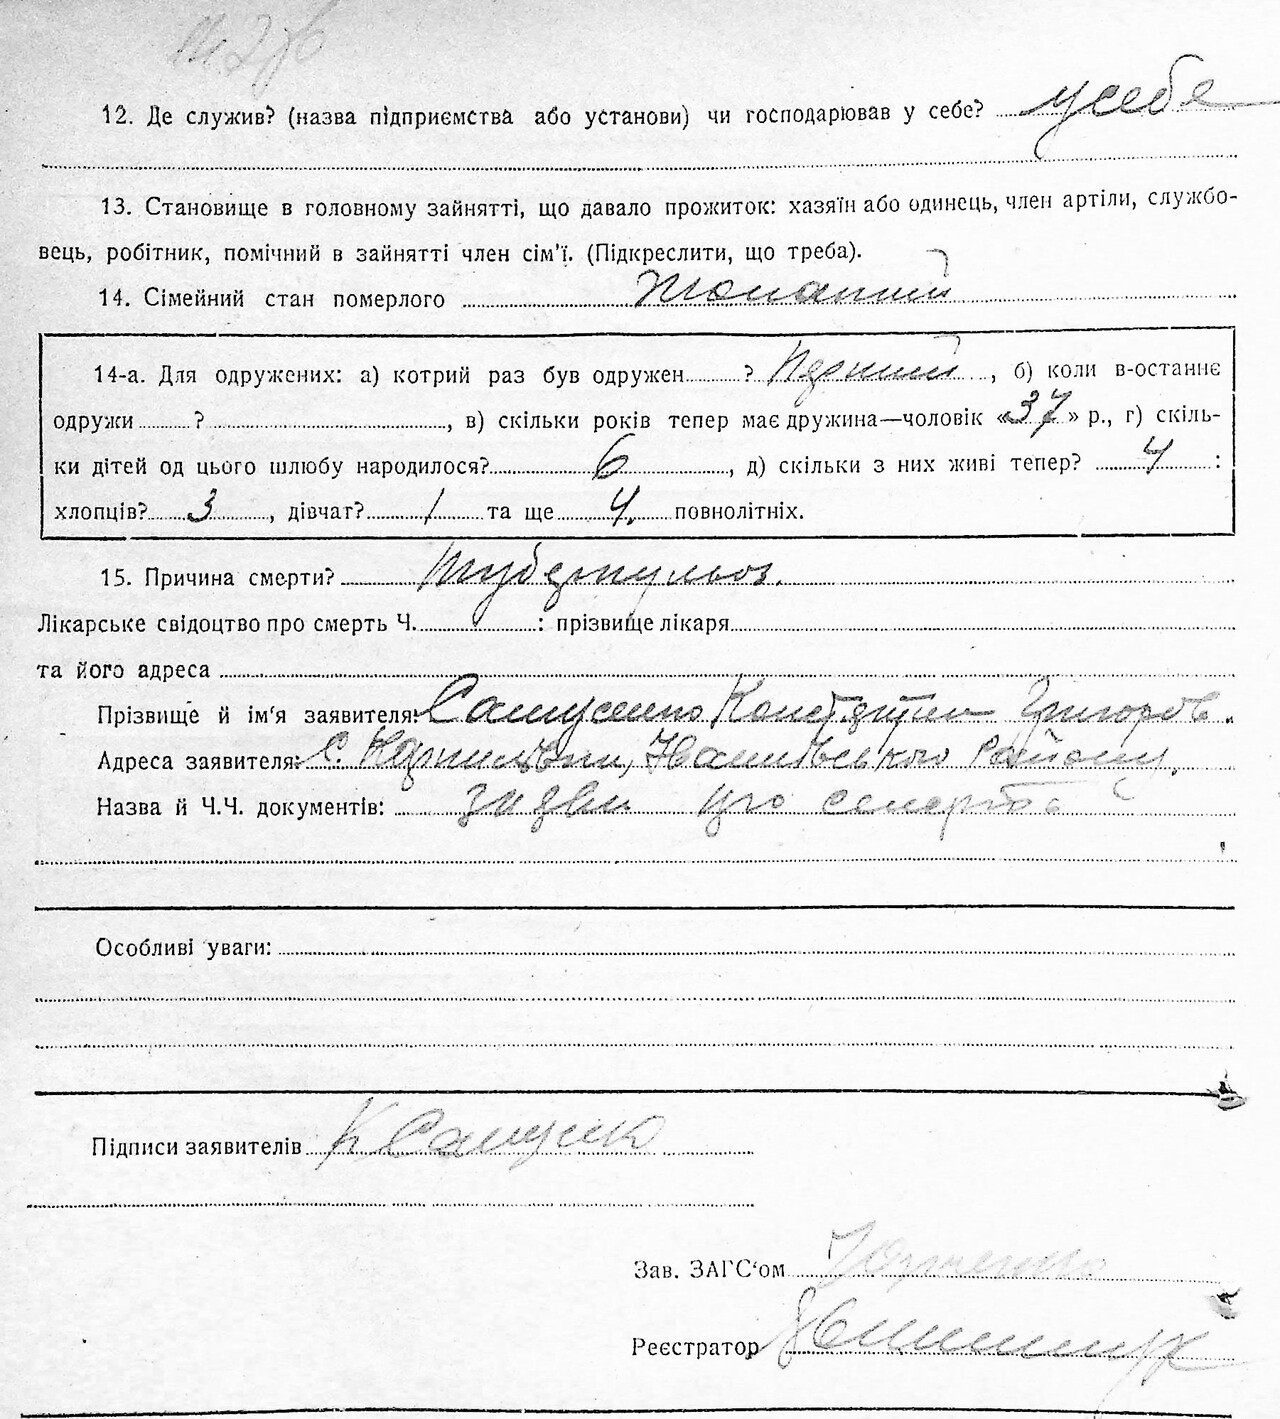 12. Де служив? (назва підприємства або установи) чи господарював у себе? у себе
13. Становище в головному зайнятті, що давало прожиток: хазяїн або одинець, член артіли, службо-
вець, робітник, помічний в зайнятті член сім'ї. (Підкреслити, що треба).
14. Сімейний стан померлого Жонатий
14-а. Для одружених: а) котрий раз був одружен ? Перший, б) коли в-останнє
одружи ? , в) скільки років тепер має дружина—чоловік «37» р., г) скіль-
ки дітей од цього шлюбу народилося? 6, д) скільки з них живі тепер? 4:
хлопців? 3, дівчат? 1 та ще 4. повнолітніх.
15. Причина смерти? Туберкульоз.
Лікарське свідоцтво про смерть Ч. : прізвище лікаря
та його адреса
Прізвище й ім'я заявителя: Костянтин Григоров.
Адреса заявителя: С. Корнилівки, Іванківського Району.
Назва й Ч.Ч. документів: про смерть
Особливі уваги:
Підписи заявителів К
Зав. ЗАГС'ом
Реєстратор